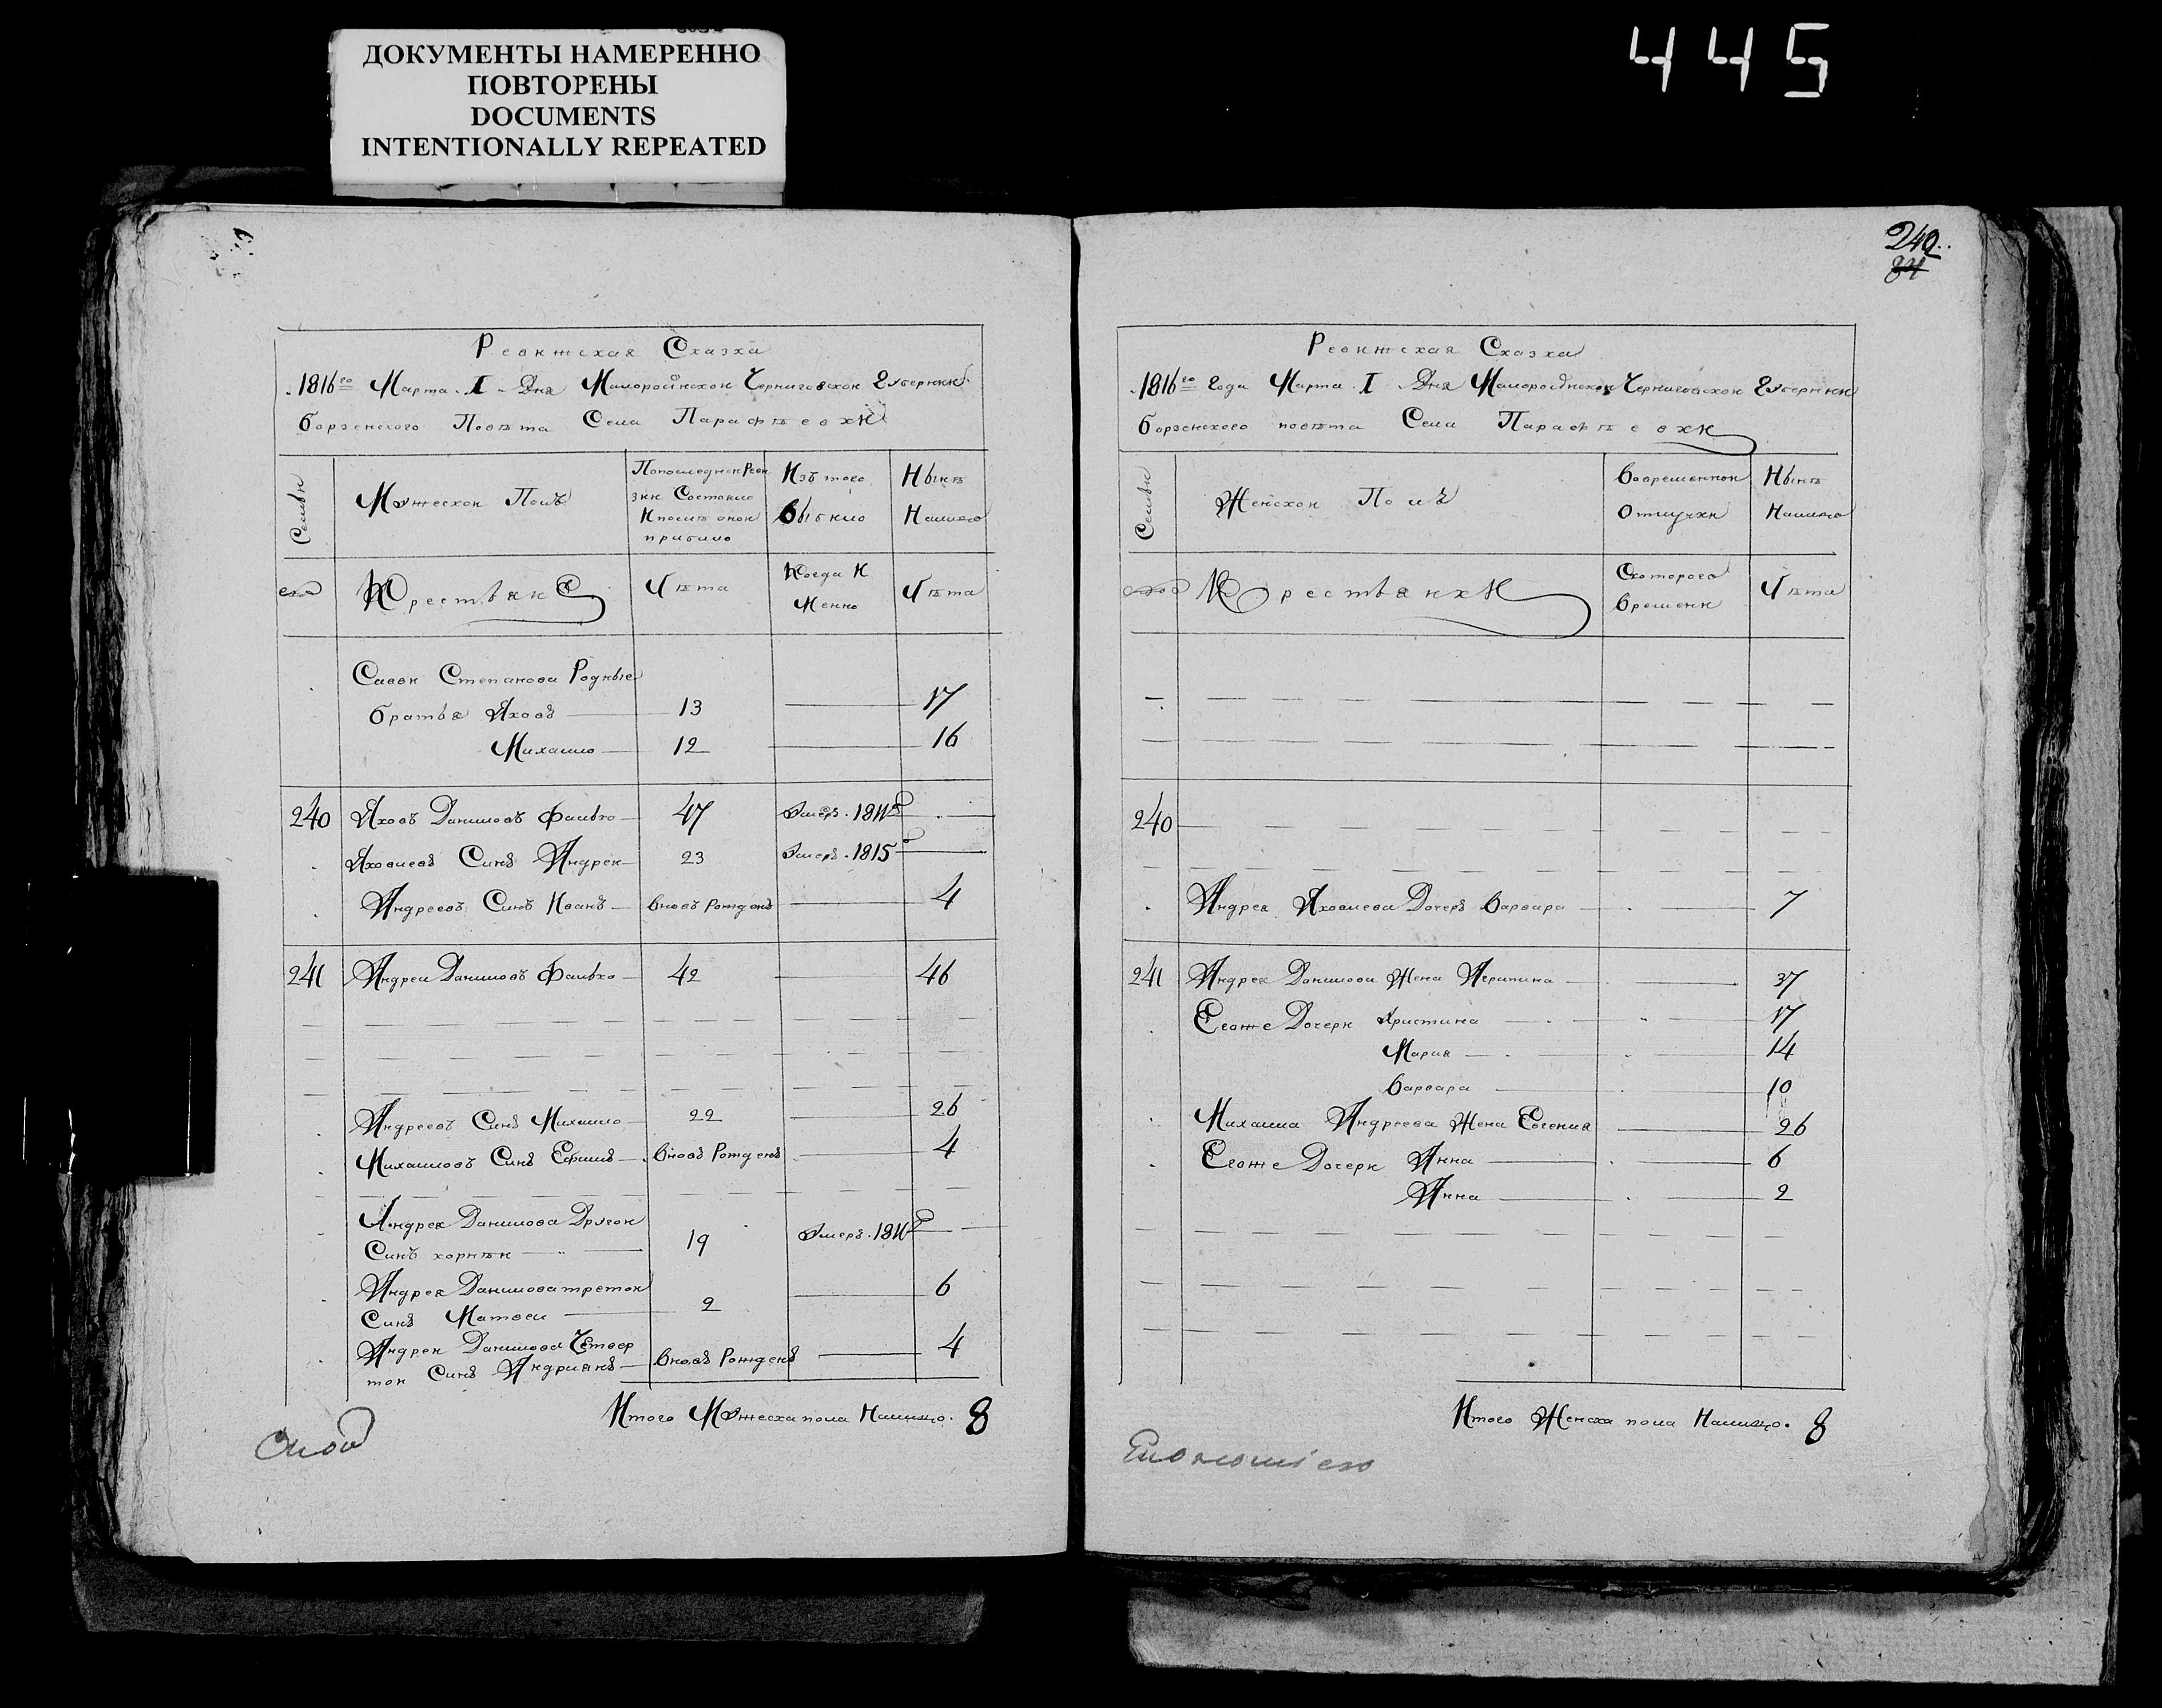 ДОКУМЕНТЫ НАМЕРЕННО
ПОВТОРЕНЫ
DOCUMENTS
INTENTIONALLY REPEATED
445
Ревижская Сказка
1816го Марта I Дня Малоросийской Черниговской Губернии
Борзенского Повѣта Села Парафѣевки
Семьи
Мужеской Полъ
Попоследней Реви
зии Состояло
и после оной
прибыло
Изъ того
Выбыло
Нынѣ
Налицо
Крестьяне
Лѣта
Когда и
Менно
Лѣта
Савы Степанова Родные
братья Яковъ 13 17
Михайло 12 16
240 Яковъ Даниловъ Фалько 47 Умеръ 181
Яковлевъ Синъ Андрей 23 Умеръ 1815
Андреевъ Синъ Иванъ вновь Рожденъ 4
241 Андрей Даниловъ Фалько 42 46
Андреевъ Синъ Михайло 22 26
Михайловъ Синъ Ефимъ вновь Рожденъ 4
Андрея Данилова Другой
Синъ Корнѣй 19 Умеръ 181
Андрея Данилова третой
Синъ Матвей 2 6
Андрея Данилова Четвер
той Синъ Андриянъ вновь Рожденъ 4
Итого Мужеска пола Налицо 8
240
84
Ревижская Сказка
1816го Года Марта I Дня Малоросийской Черниговской Губернии
Борзенского повѣта Села Парафѣевки
Семьи
Женской Полъ
Вовременной
Отлучки
Нынѣ
Налицо
Крестьянки
Скоторого
Времени
Лѣта
240
Андрея Яковлева Дочеръ Варвара 7
241 Андрея Данилова Жена Агрипина 37
Егоже Дочери Христина 17
Мария 14
Варвара 10
Михайла Андреева Жена Евгения 26
Егоже Дочери Анна 6
Анна 2
Итого Женска пола Налицо 8